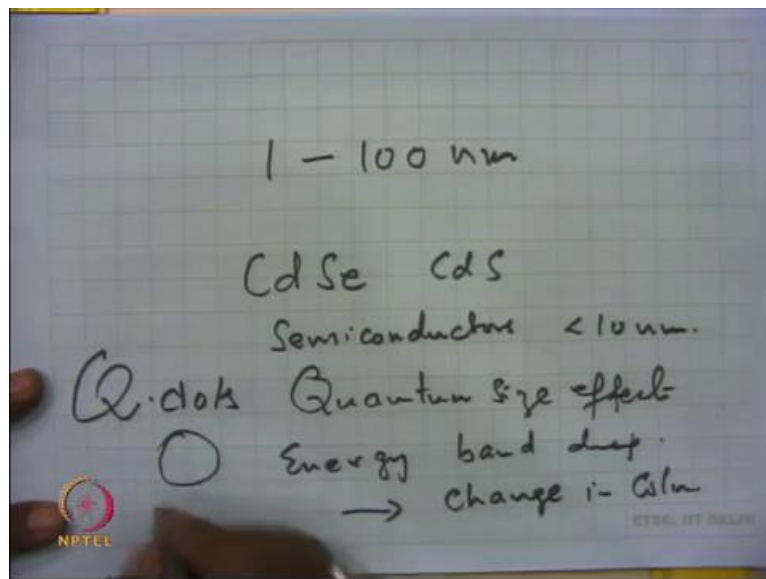 1 - 100 nm
CdSe CdS
Semiconductors < 10 nm.
Q.dots Quantum size effect
Energy band
→ change in
NPTEL
ETSC, IIT DELHI